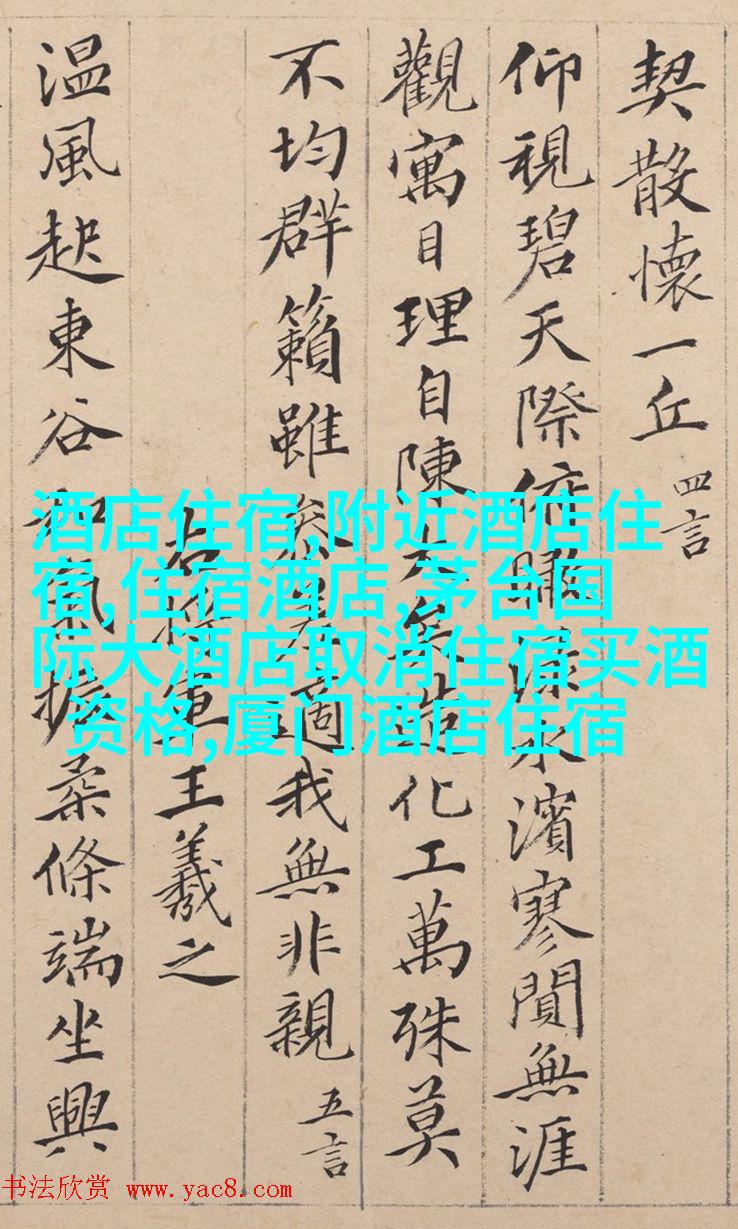 契散懷一丘 四言
仰視碧天際俯瞰淥水濱寥閴無涯
觀寓目理自陳大矣造化工萬殊莫
不均群籟雖參差適我無非親 五言
右將軍王羲之
温風起東谷和氣振柔條端坐興
酒店住宿,附近酒店住
宿,住宿酒店,茅台国
际大酒店取消住宿买酒
资格,厦门酒店住宿
书法欣赏 www.yac8.com